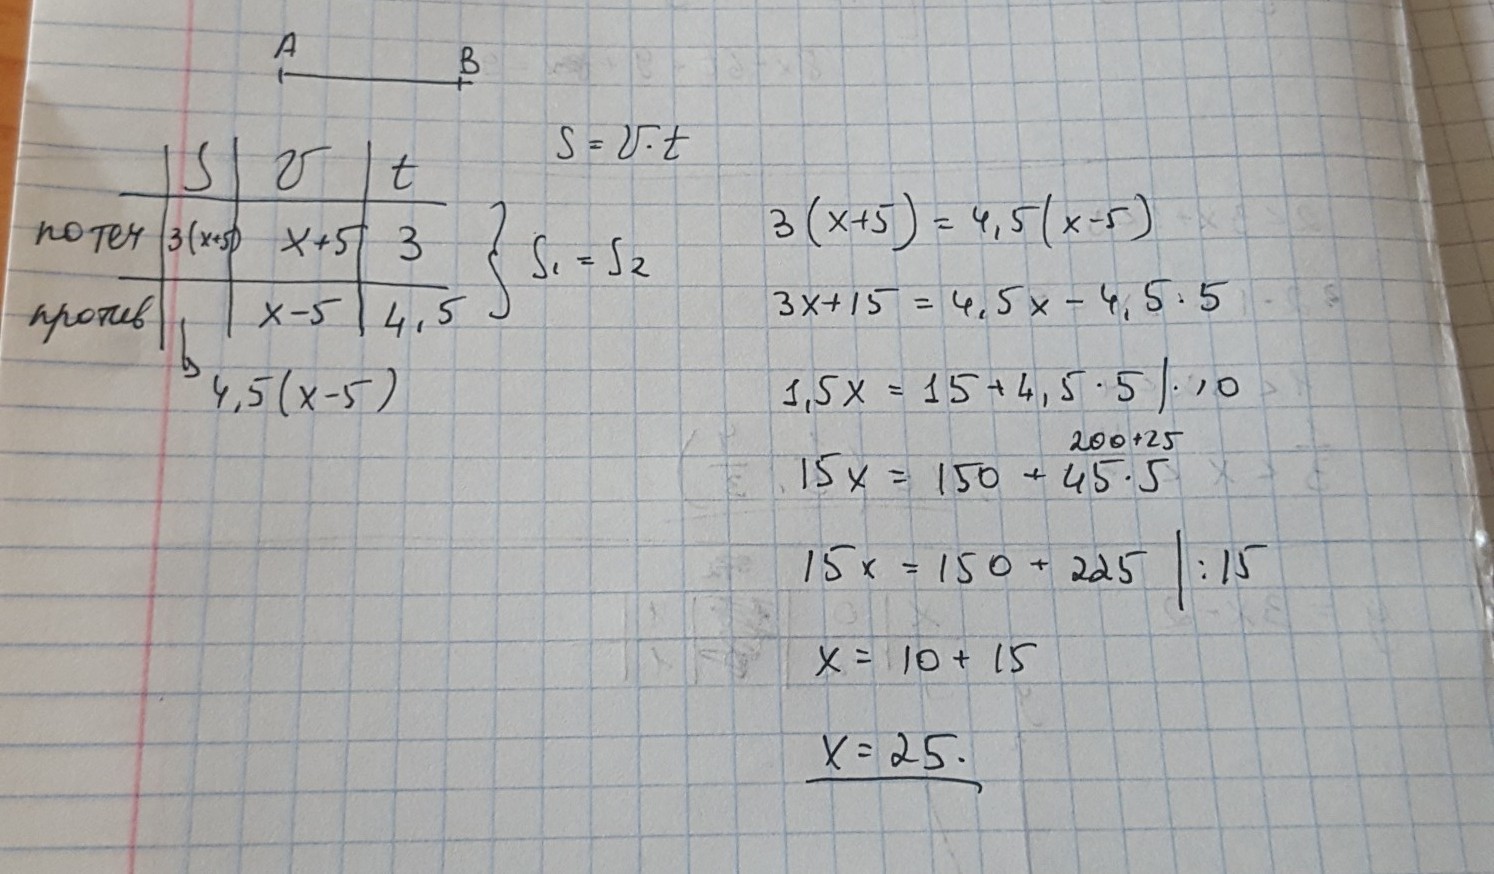 A B
S = v·t
S v t
по теч 3(x+5) x+5 3
против x-5 4,5
4,5(x-5)
S₁ = S₂
3(x+5) = 4,5(x-5)
3x+15 = 4,5x - 4,5·5
1,5x = 15+4,5·5 |·10
200+25
15x = 150 + 45·5
15x = 150 + 225 |:15
x = 10 + 15
x = 25.